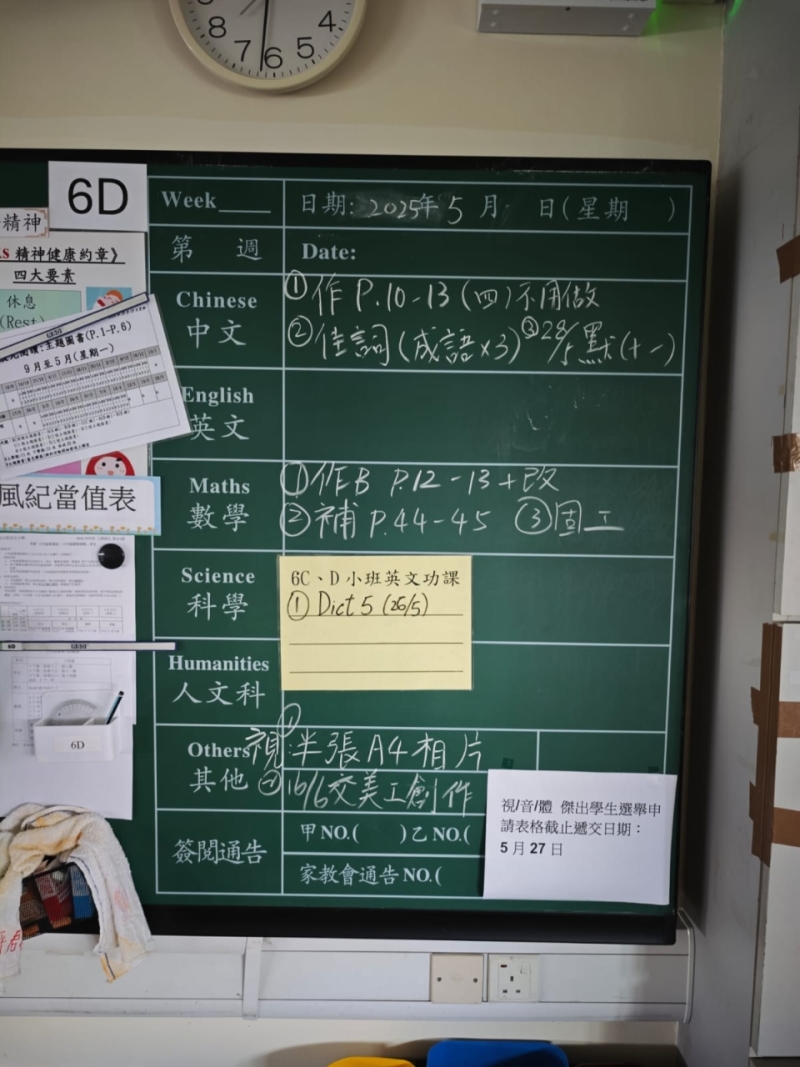 8 7 6 5 4
6D
Week____ 日期: 2025年 5 月 日(星期 )
第 週 Date:
Chinese
中文
①作 P.10-13 (四)不用做
②佳詞(成語×3) ③28/5默(十一)
English
英文
Maths
數學
①作B P.12-13+改
②補 P.44-45 ③固工
Science
科學
6C、D小班英文功課
①Dict 5 (26/5)
Humanities
人文科
Others
其他
①視:半張A4相片
②16/6交美工創作
簽閱通告
甲NO.( )乙NO.(
家教會通告NO.(
視/音/體 傑出學生選舉申
請表格截止遞交日期：
5 月 27 日
精神
精神健康約章》
四大要素
休息
(Rest)
主題圖書(P.1-P.6)
9月至5月(星期一)
風紀當值表
6D
6D